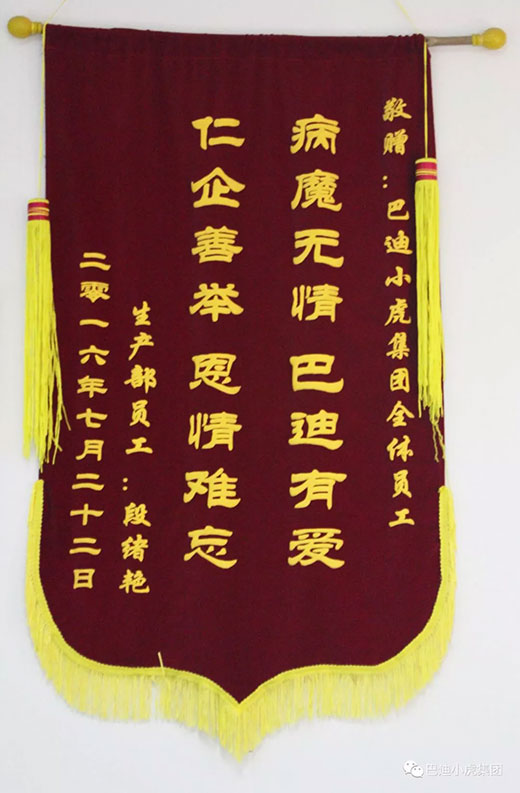 敬赠：巴迪小虎集团全体员工
病魔无情 巴迪有爱
仁企善举 恩情难忘
生产部员工：段绪艳
二零一六年七月二十二日
巴迪小虎集团